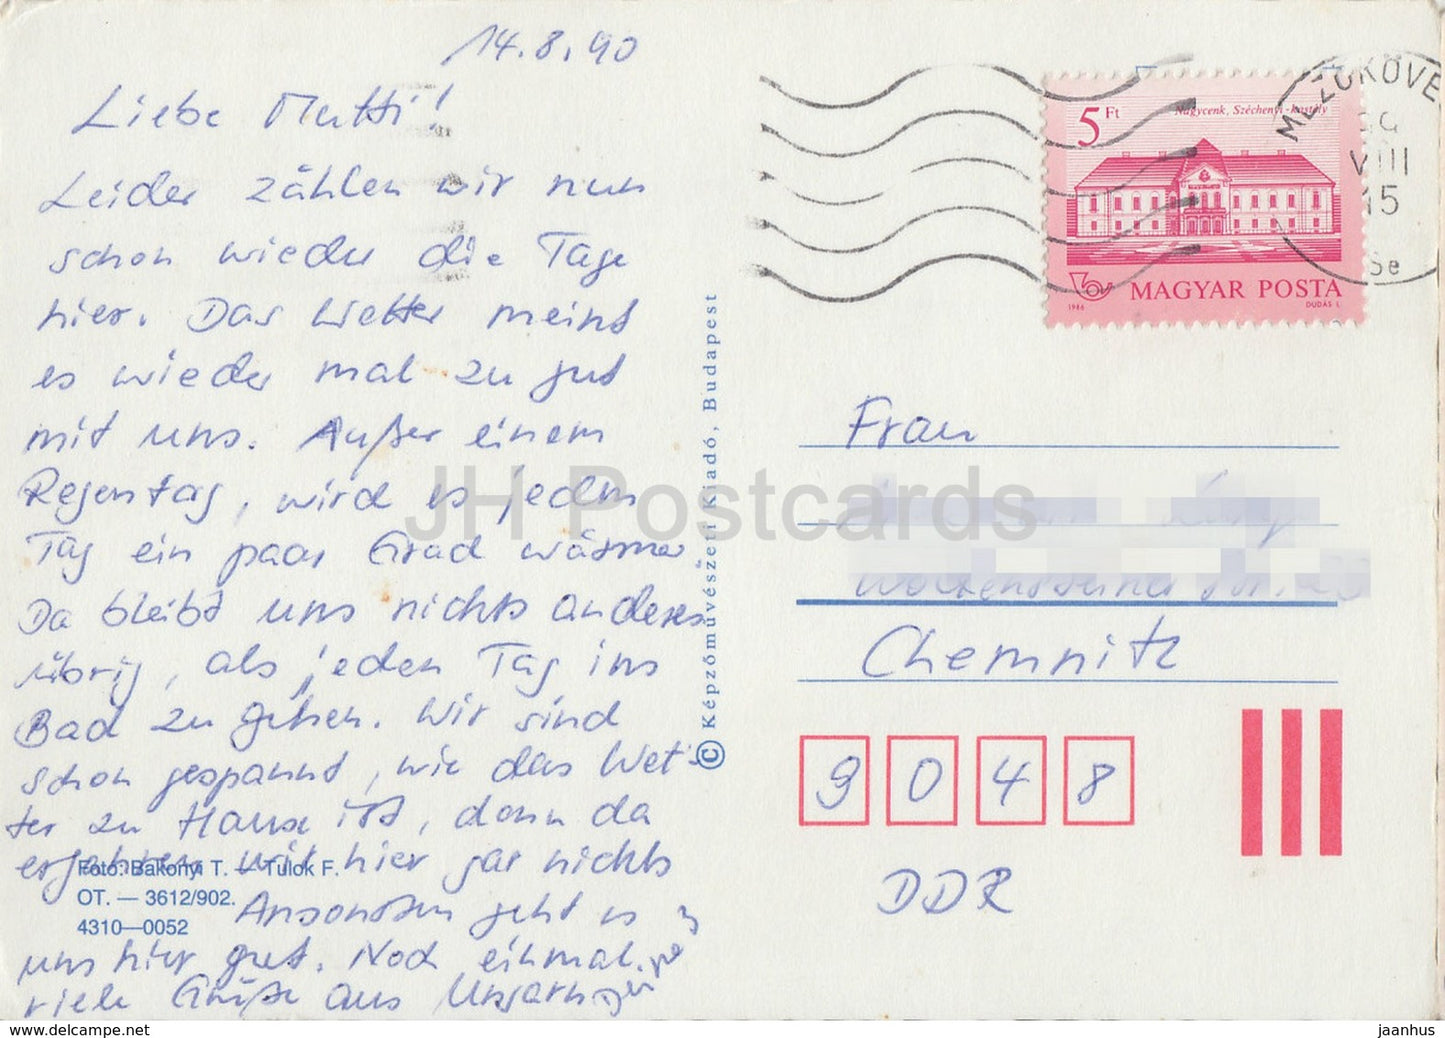 14.8.90
Liebe Mutti!
Leider zählen wir nun
schon wieder die Tage
hier. Das Wetter meint
es wieder mal zu gut
mit uns. Außer einem
Regentag, wird es jeden
Tag ein paar Grad wärmer.
Da bleibt uns nichts anderes
übrig, als jeden Tag ins
Bad zu gehen. Wir sind
schon gespannt, wie das Wet-
ter zu Hause ist, denn da
erfahren wir hier gar nichts
Ansonsten geht es
uns hier gut. Noch einmal
viele Grüße aus Ungarn
Foto: Bakonyi T. — Tulok F.
OT. — 3612/902.
4310—0052
© Képzőművészeti Kiadó, Budapest
MEZŐKÖVE
VIII
15
Se
5 Ft
Nagycenk, Széchenyi-kastély
MAGYAR POSTA
1986
DUDÁS L.
Frau
Chemnitz
9048
DDR
JH Postcards
www.delcampe.net
jaanhus